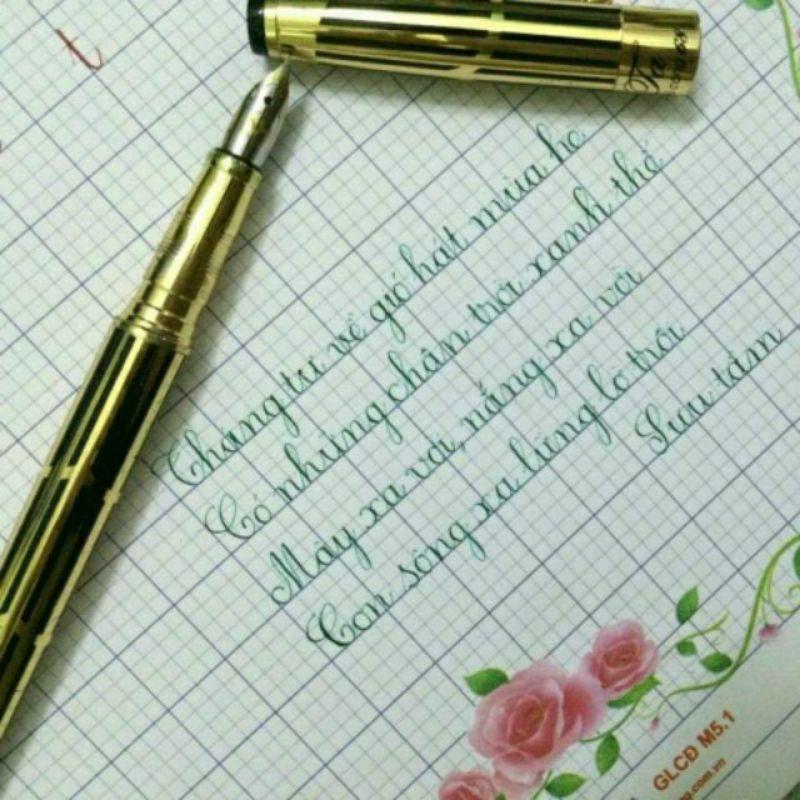 t
Tháng tư về gió hát mùa hạ
Có những chân trời xanh thế
Mây xa vời, nắng xa vời
Con sông xa lững lờ trôi
Sưu tầm
GLCĐ M5.1